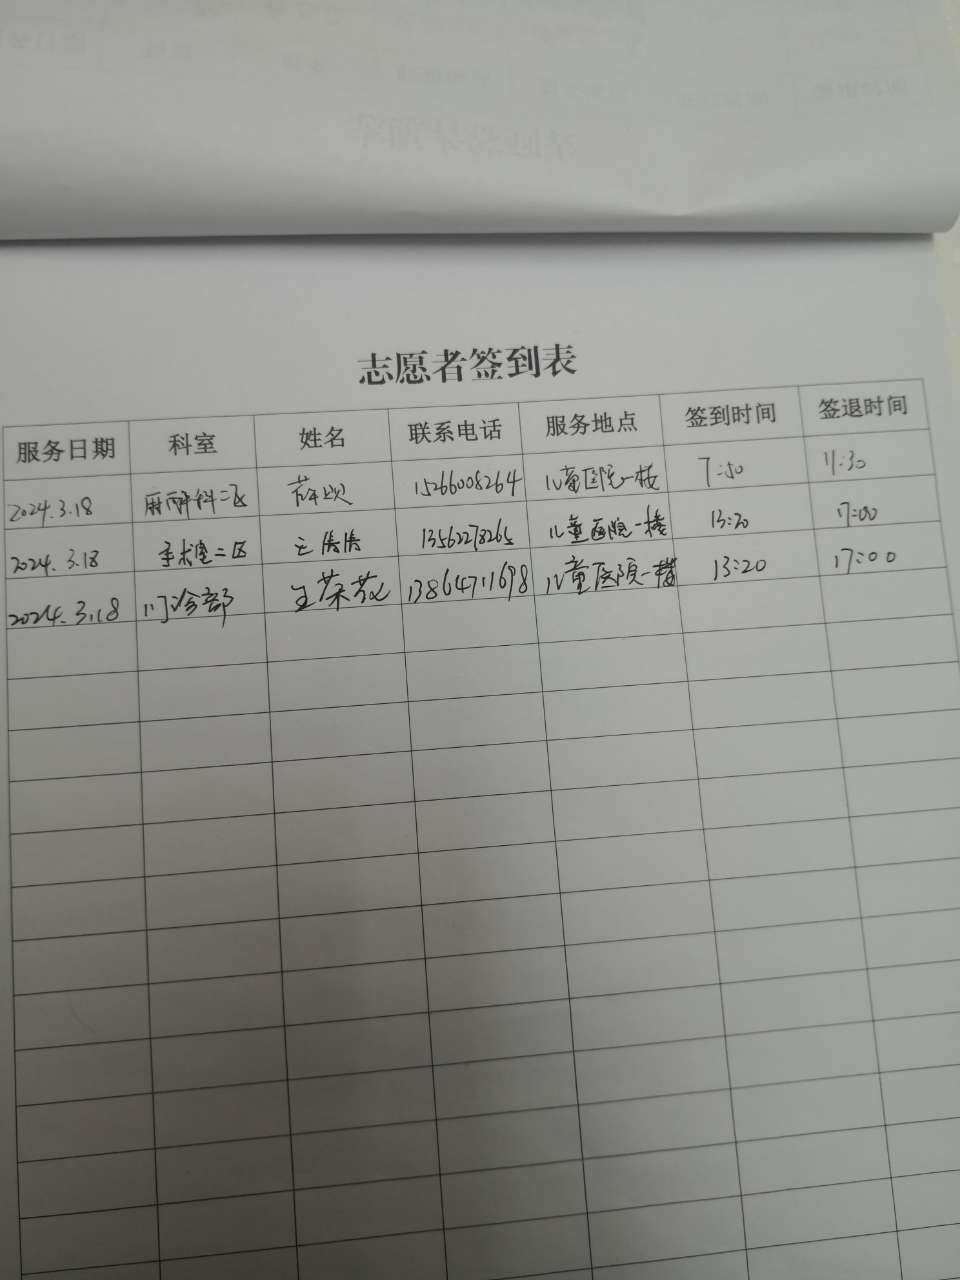 志愿者签到表
服务日期 科室 姓名 联系电话 服务地点 签到时间 签退时间
2024.3.18 麻醉科二区 15266008264 儿童医院一楼 7:50 11:30
2024.3.18 手术室二区 王倩倩 13562278265 儿童医院一楼 13:20 17:00
2024.3.18 门诊部 王荣 13864711698 儿童医院一楼 13:20 17:00